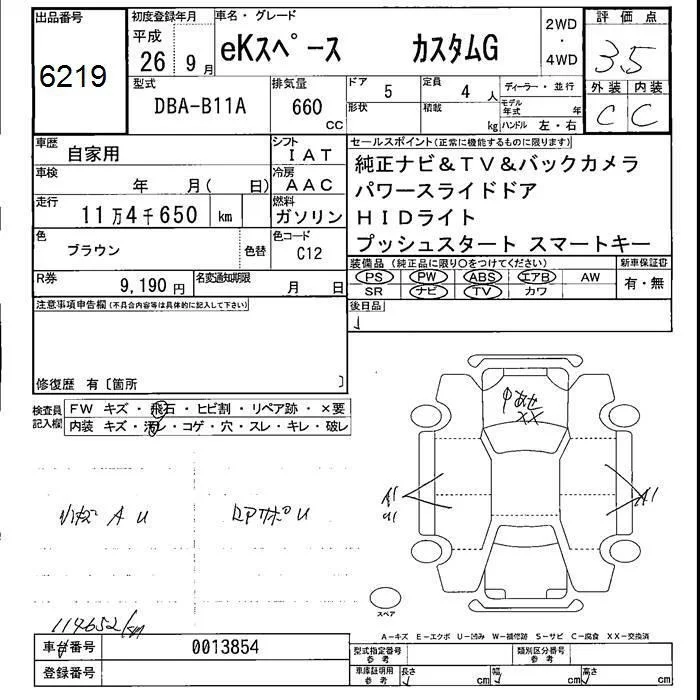 出品番号
6219
初度登録年月
平成
26 9月
車名・グレード
eKスペース カスタムG
2WD
・
4WD
評価点
3.5
外装 内装
C C
型式
DBA-B11A
排気量
660
CC
ドア 5
定員 4 人
ディーラー・並行
形状
積載 kg
モデル年式 年
ハンドル 左・右
車歴
自家用
シフト
IAT
車検
年 月( 日)
冷房
AAC
走行
11万4千650 km
燃料
ガソリン
色
ブラウン
色替
色コード
C12
R券
9,190 円
名変通知期限
月 日
セールスポイント(正常に機能するものに限ります)
純正ナビ&TV&バックカメラ
パワースライドドア
HIDライト
プッシュスタート スマートキー
装備品 (純正品に限り○をつけてください)
PS PW ABS エアB AW
SR ナビ TV カワ
新車保証書
有・無
後日品
注意事項申告欄(不具合内容等は具体的に記入して下さい)
修復歴 有〔箇所 〕
検査員記入欄
FW キズ・飛石・ヒビ割・リペア跡・×要
内装 キズ・汚レ・コゲ・穴・スレ・キレ・破レ
A U
U
XX
A1
U1
A1
スペア
114652km
A-キズ E-エクボ U-凹み W-補修跡 S-サビ C-腐食 XX-交換済
車番号
0013854
登録番号
型式指定番号
参考
類別区分番号
参考
車庫証明用
参考
長さ cm 幅 cm 高さ cm